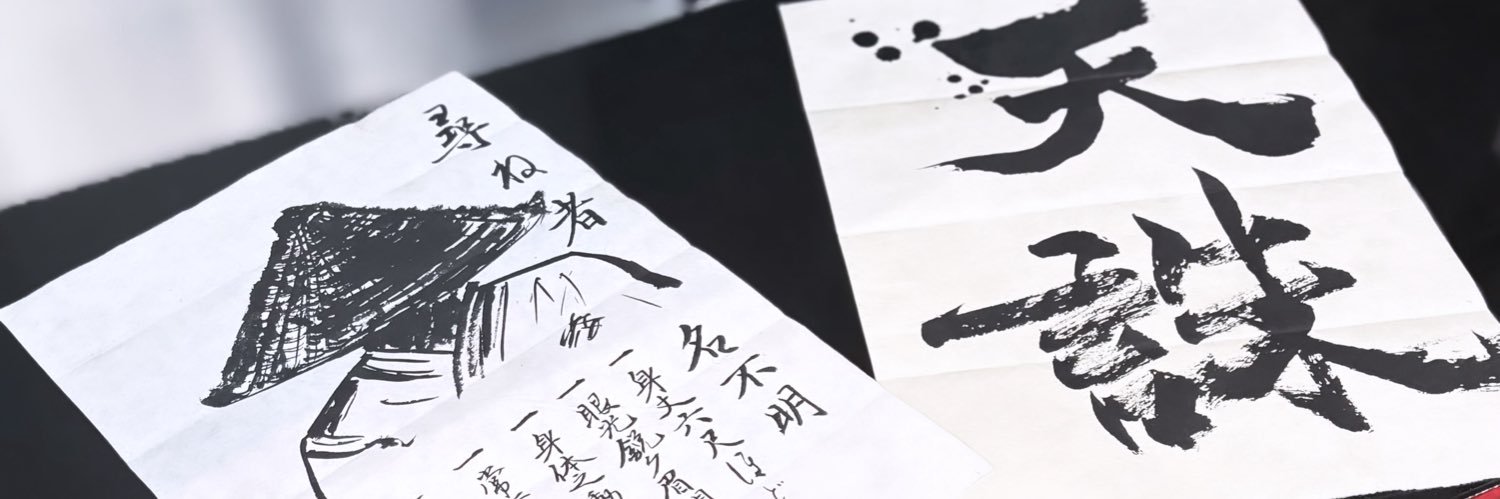 天誅
尋ね者
名不明
一身丈六尺ほど
一眼光鋭ク眉
一身体之
一常